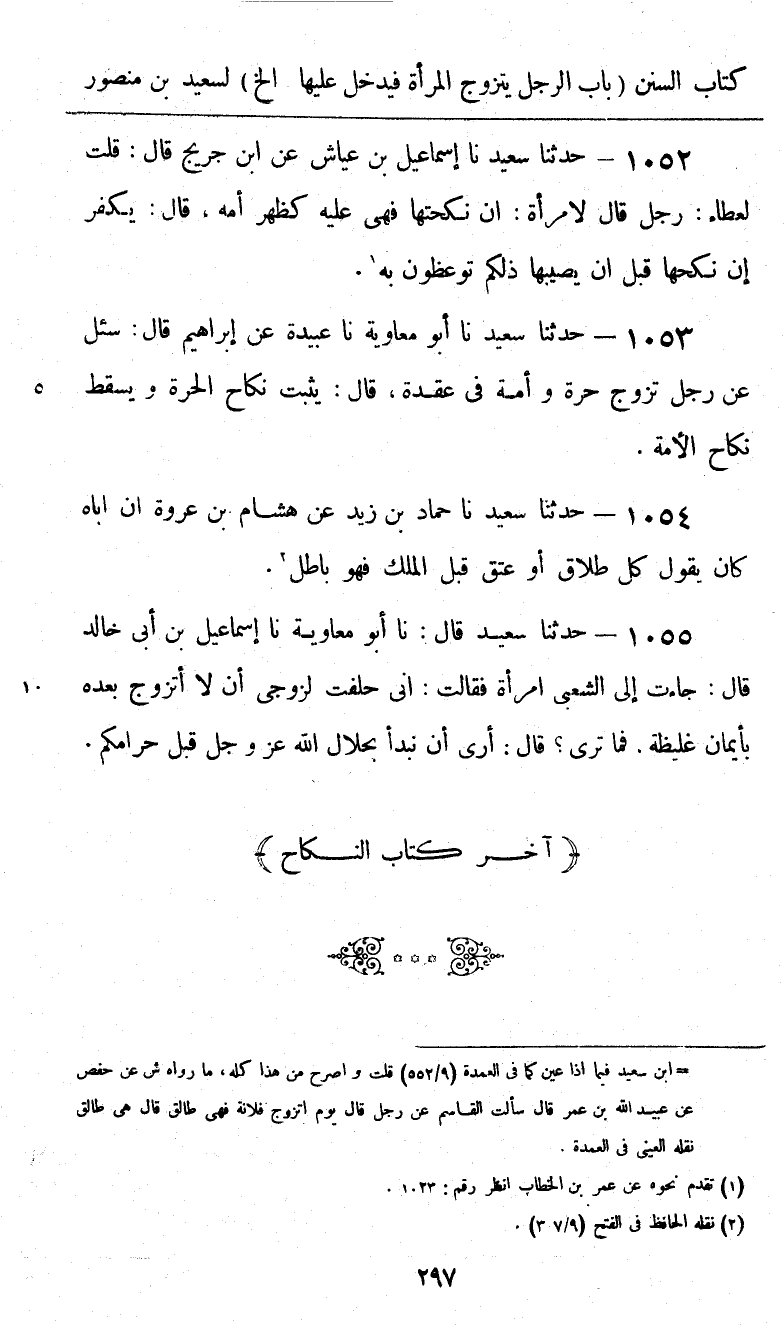 كتاب السنن ( باب الرجل يتزوج المرأة فيدخل عليها الخ ) لسعيد بن منصور
١٠٥٢ – حدثنا سعيد نا إسماعيل بن عياش عن ابن جريج قال : قلت
لعطاء : رجل قال لامرأة : ان نكحتها فهى عليه كظهر أمه ، قال : يكفر
إن نكحها قبل ان يصيبها ذلكم توعظون به١ .
١٠٥٣ – حدثنا سعيد نا أبو معاوية نا عبيدة عن إبراهيم قال : سئل
عن رجل تزوج حرة و أمة فى عقدة ، قال : يثبت نكاح الحرة و يسقط ٥
نكاح الأمة .
١٠٥٤ – حدثنا سعيد نا حماد بن زيد عن هشام بن عروة ان اباه
كان يقول كل طلاق أو عتق قبل الملك فهو باطل٢ .
١٠٥٥ – حدثنا سعيد قال : نا أبو معاوية نا إسماعيل بن أبى خالد
قال : جاءت إلى الشعبى امرأة فقالت : انى حلفت لزوجى أن لا أتزوج بعده ١٠
بأيمان غليظة . فما ترى ؟ قال : أرى أن نبدأ بحلال الله عز و جل قبل حرامكم .
﴿ آخر كتاب النكاح ﴾
= ابن سعيد فيما اذا عين كما فى العمدة (٥٥٢/٩) قلت و اصرح من هذا كله ، ما رواه ش عن حفص
عن عبيد الله بن عمر قال سألت القاسم عن رجل قال يوم اتزوج فلانة فهى طالق قال هى طالق
نقله العينى فى العمدة .
(١) تقدم نحوه عن عمر بن الخطاب انظر رقم : ١٠٢٣ .
(٢) نقله الحافظ فى الفتح (٣٠٧/٩) .
٢٩٧